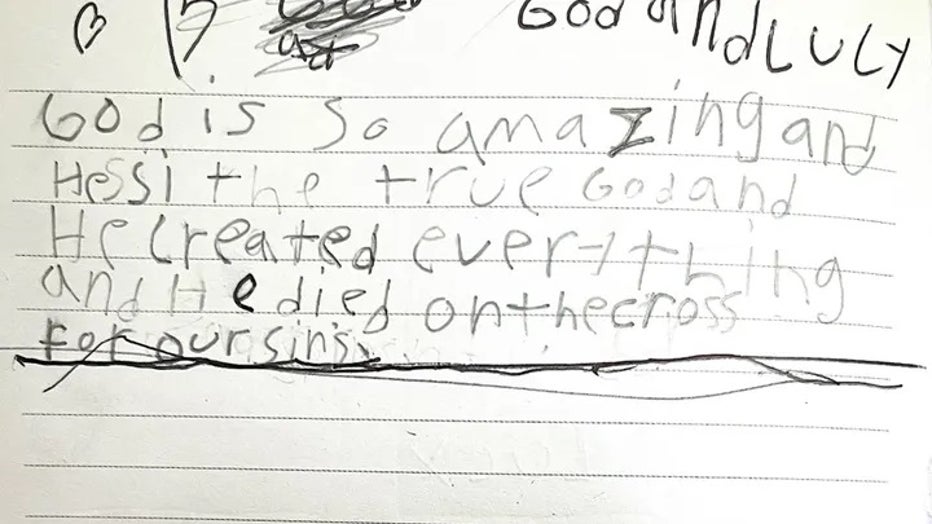 God and LULY
God is so amazing and
Hessi the true God and
He created every thing
and He died on the cross
for our sins